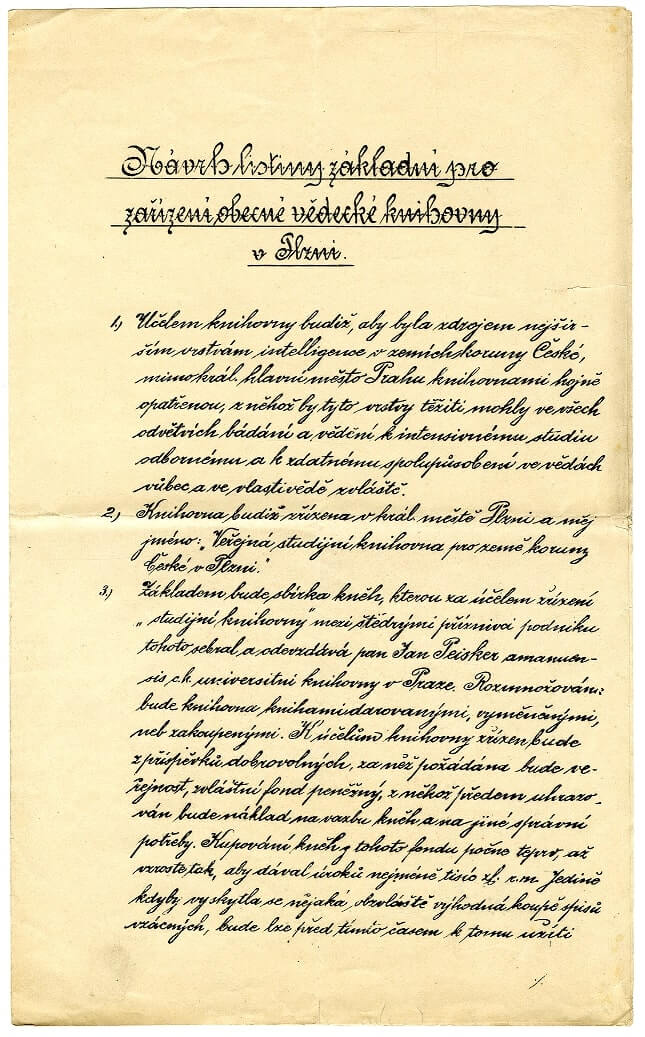 Návrh listiny základní pro
zařízení obecné vědecké knihovny
v Plzni.
1.) Účelem knihovny budiž, aby byla zdrojem nejšir-
ším vrstvám intelligence v zemích koruny České,
mimo král. hlavní město Prahu knihovnami hojně
opatřenou, z něhož by tyto vrstvy těžiti mohly ve všech
odvětvích bádání a vědění k intensivnému studiu
odbornému a k zdatnému spolupůsobení ve vědách
vůbec a ve vlastivědě zvláště.
2.) Knihovna budiž zřízena v král. městě Plzni a měj
jméno: „Veřejná studijní knihovna pro země koruny
České v Plzni."
3.) Základem bude sbírka kněh, kterou za účelem zřízení
„studijní knihovny" mezi štědrými příznivci podniku
tohoto sebral a odevzdává pan Jan Peisker amanuen-
sis c.k. universitní knihovny v Praze. Rozmnožována
bude knihovna knihami darovanými, vyměněnými,
neb zakoupenými. K účelům knihovny zřízen bude
z příspěvků dobrovolných, za něž požádána bude ve-
řejnost, zvláštní fond peněžný, z něhož předem uhrazo-
ván bude náklad na vazbu kněh a na jiné správní
potřeby. Kupování kněh z tohoto fondu počne teprv, až
vzroste tak, aby dával úroků nejméně tisíc zl. r.m. Jedině
kdyby vyskytla se nějaká, obzvláště výhodná koupě spisů
vzácných, bude lze před tímto časem k tomu užíti
./.